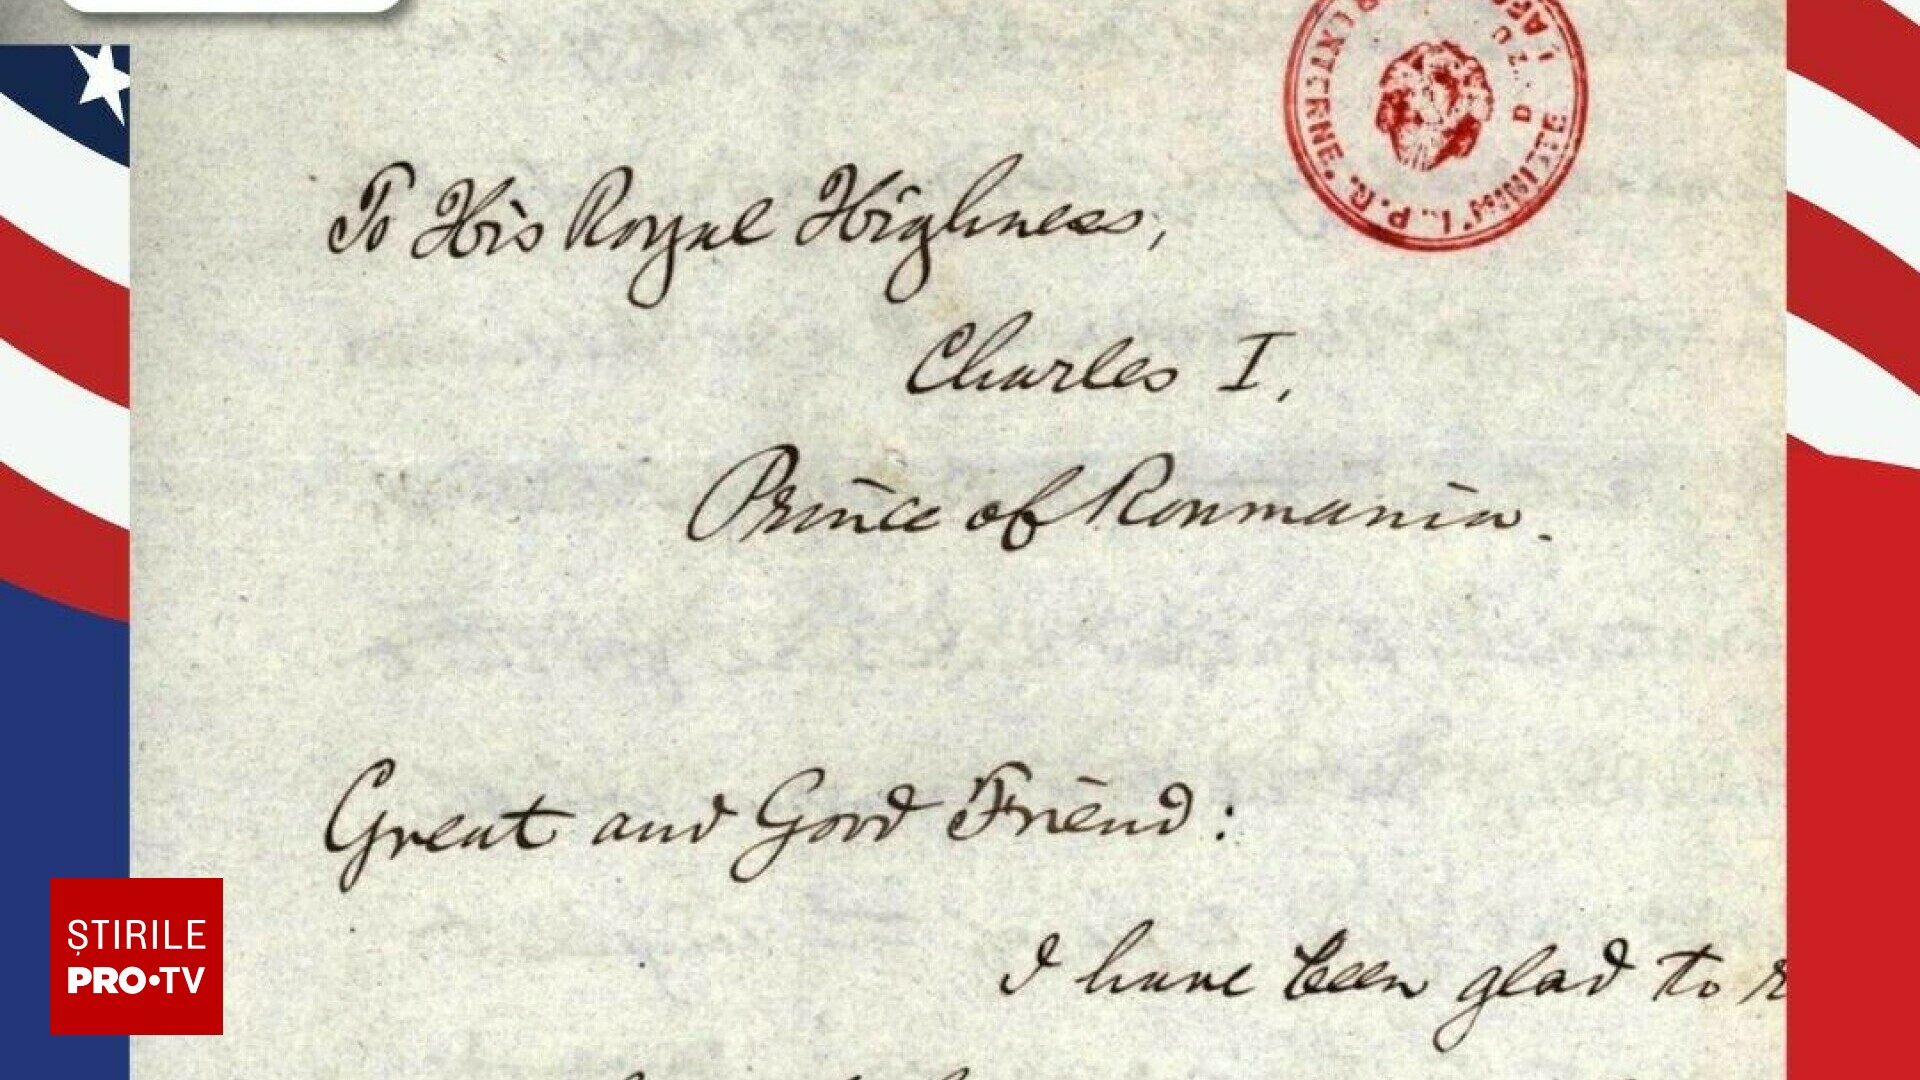 To His Royal Highness,
Charles I,
Prince of Roumania.
Great and Good Friend:
I have been glad to
ȘTIRILE
PRO•TV